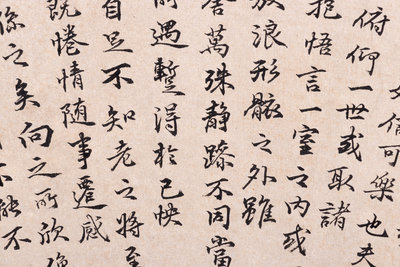 信可樂也夫
俯仰一世或取諸
抱悟言一室之内或
放浪形骸之外雖
舍萬殊静躁不同當
遇蹔得於己怏
自足不知老之將至
既惓情随事遷感
係之矣向之所欣
能不